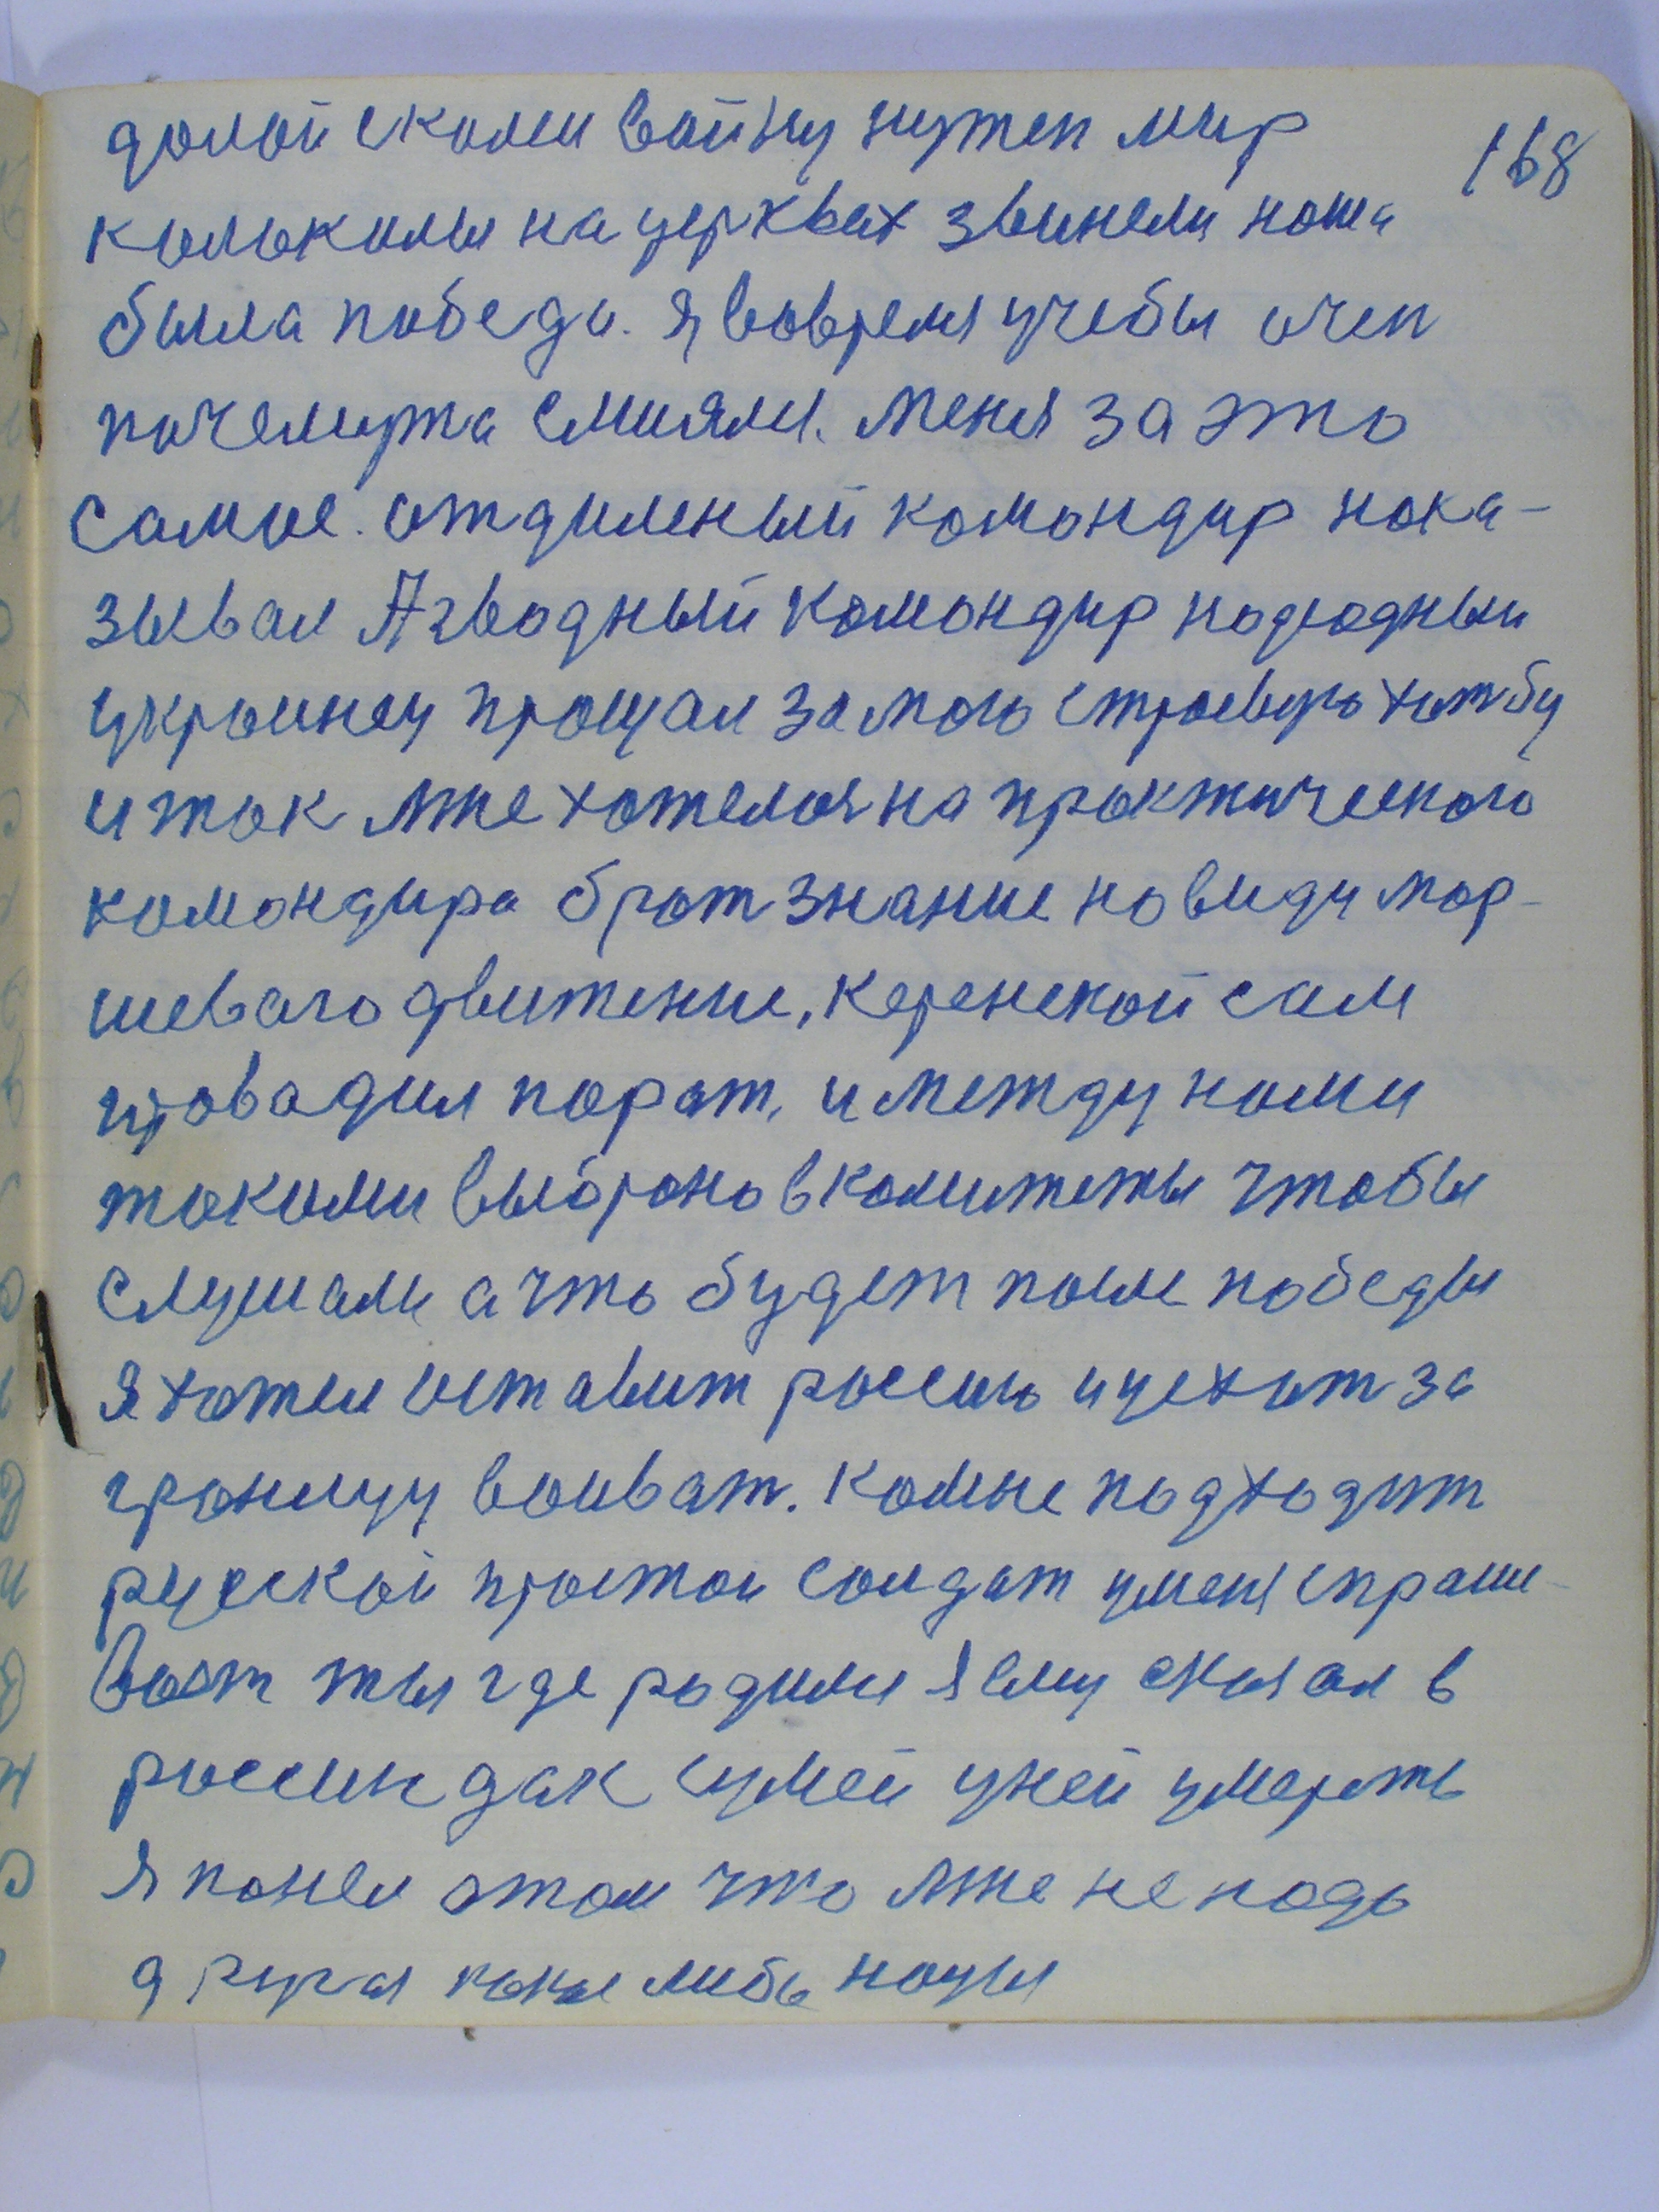 долой сколи войну нужен мир
168
колоколы на церквах звинели ноша
была победа. я вовремя учебы очен
почемута смиялся. меня за это
самое. отдиленый командир нока-
зывал А взводный комондир подходный
украинец прощал за мою строевую хотбу
и ток мне хотелося на проктического
комондира брот знание но виду мор-
шеваго движение, Керенской сам
провадил порат, и между номи
токими выброно в комитеты чтобы
слушали а что будет после победы
я хотел оставит россию и уехат за
гроницу воиват. Комне подходит
руской простои солдат уменя спраши-
вает ты где родился я ему сказал в
россии дак сумей уней умереть
я понел этом что мне не нодо
другая кокая либо нацыя